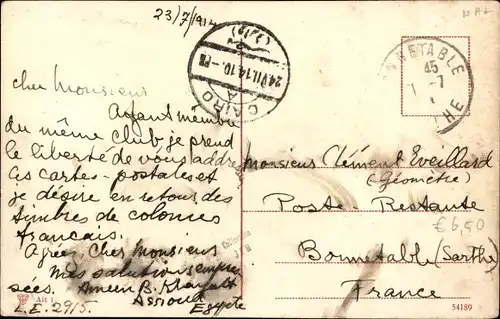 23/7/1914
CAIRO
A
24.VII.14.10-PM
BONNETABLE
45
-7
SARTHE
cher Monsieur
Ayant membre
du même Club, je prend
le liberté de vous addre
ces cartes-postales et
je désire en retour des
timbres de colonies
français.
Agréez, cher Monsieur
Mes salutations empres
sées. Ameen B. Khayatt
Assiout
Egypte
L.E. 2915.
Monsieur Clément Eveillard
(Géomètre)
Poste Restante
Bonnetable (Sarthe)
France
€6,50
Collection
54189